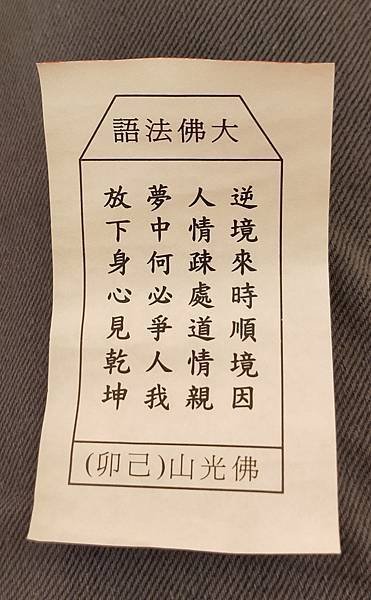 大佛法語
逆境來時順境因
人情疎處道情親
夢中何必爭人我
放下身心見乾坤
佛光山(己卯)